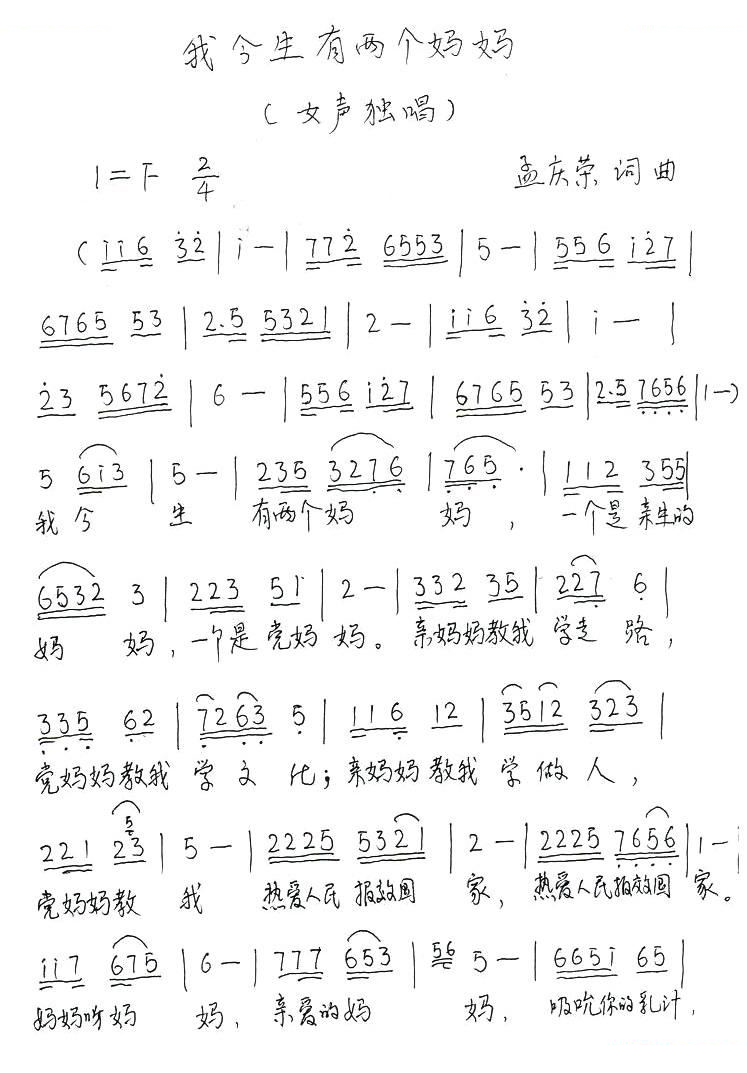 我今生有两个妈妈
（女声独唱）
1=F 2/4 孟庆荣 词曲
(i̇i̇6 3̇2̇ | i̇ — | 772̇ 6553 | 5 — | 556 i̇2̇7 |
6765 53 | 2.5 5321 | 2 — | i̇i̇6 3̇2̇ | i̇ — |
2̇3 5672̇ | 6 — | 556 i̇2̇7 | 6765 53 | 2.5 7̣6̣5̣6̣ | 1 —)
5 6i̇3 | 5 — | 235 327̣6̣ | 7̣6̣5̣ · | 112 355 |
我今 生 有两个妈 妈，一个是亲生的
6532 3 | 223 51̇ | 2 — | 332 35 | 227̣ 6̣ |
妈 妈，一个是党妈妈。亲妈妈教我 学走 路，
3̣3̣5̣ 6̣2 | 7̣26̣3̣ 5̣ | 116̣ 12 | 3512 323 |
党妈妈教我 学 文 化；亲妈妈教我 学 做 人，
221 523 | 5 — | 2225 5321 | 2 — | 2225 7̣6̣5̣6̣ | 1 — |
党妈妈教 我 热爱人民 报效国 家，热爱人民报效国 家。
i̇i̇7 675 | 6 — | 777 653 | 56 5 — | 665i̇ 65 |
妈妈呀妈 妈，亲爱的妈 妈，吸吮你的乳汁，